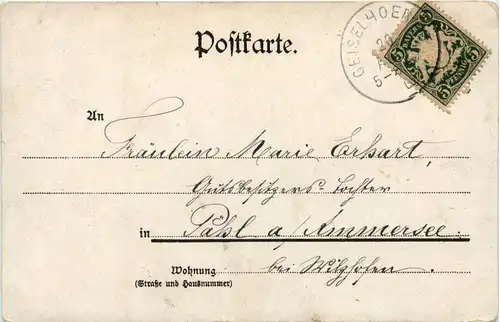 Postkarte.
GEISELHOE
5
BAYERN
PFENNIG
An
Fräulein Marie Erhart,
Gutsbesitzers-Tochter
in Pähl a/Ammersee.
bei Wilzhofen.
Wohnung
(Straße und Hausnummer)